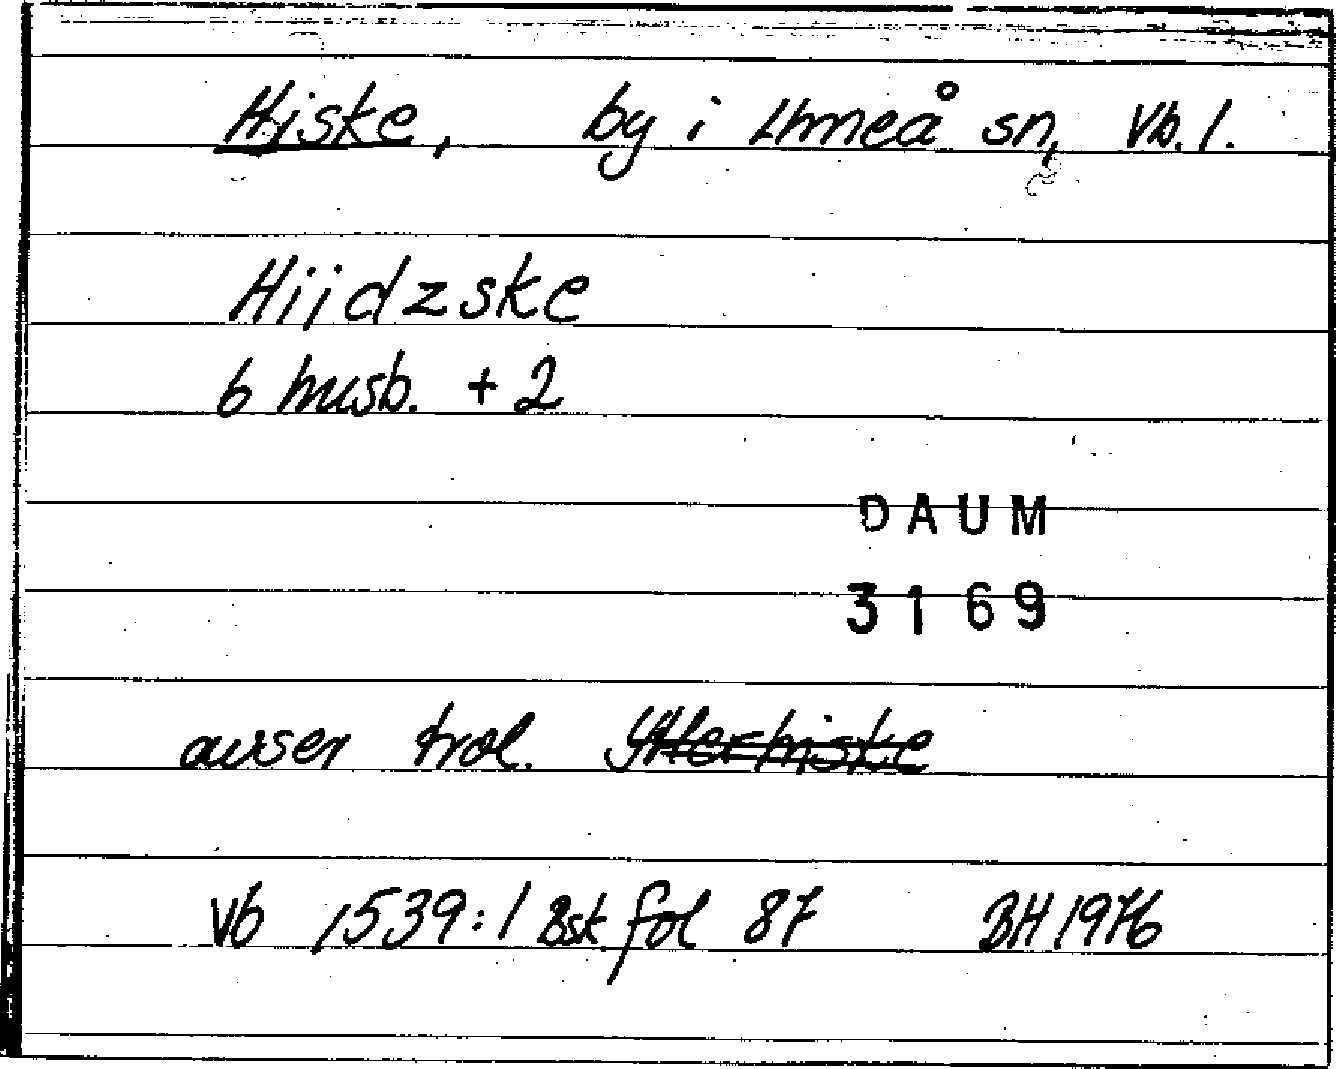 Hiske, by i Umeå sn, Vb. l.
Hijdzske
6 husb. + 2
DAUM
3169
avser trol. Ytterhiske
Vb 1539:1 Bsk fol 87 BH 1976